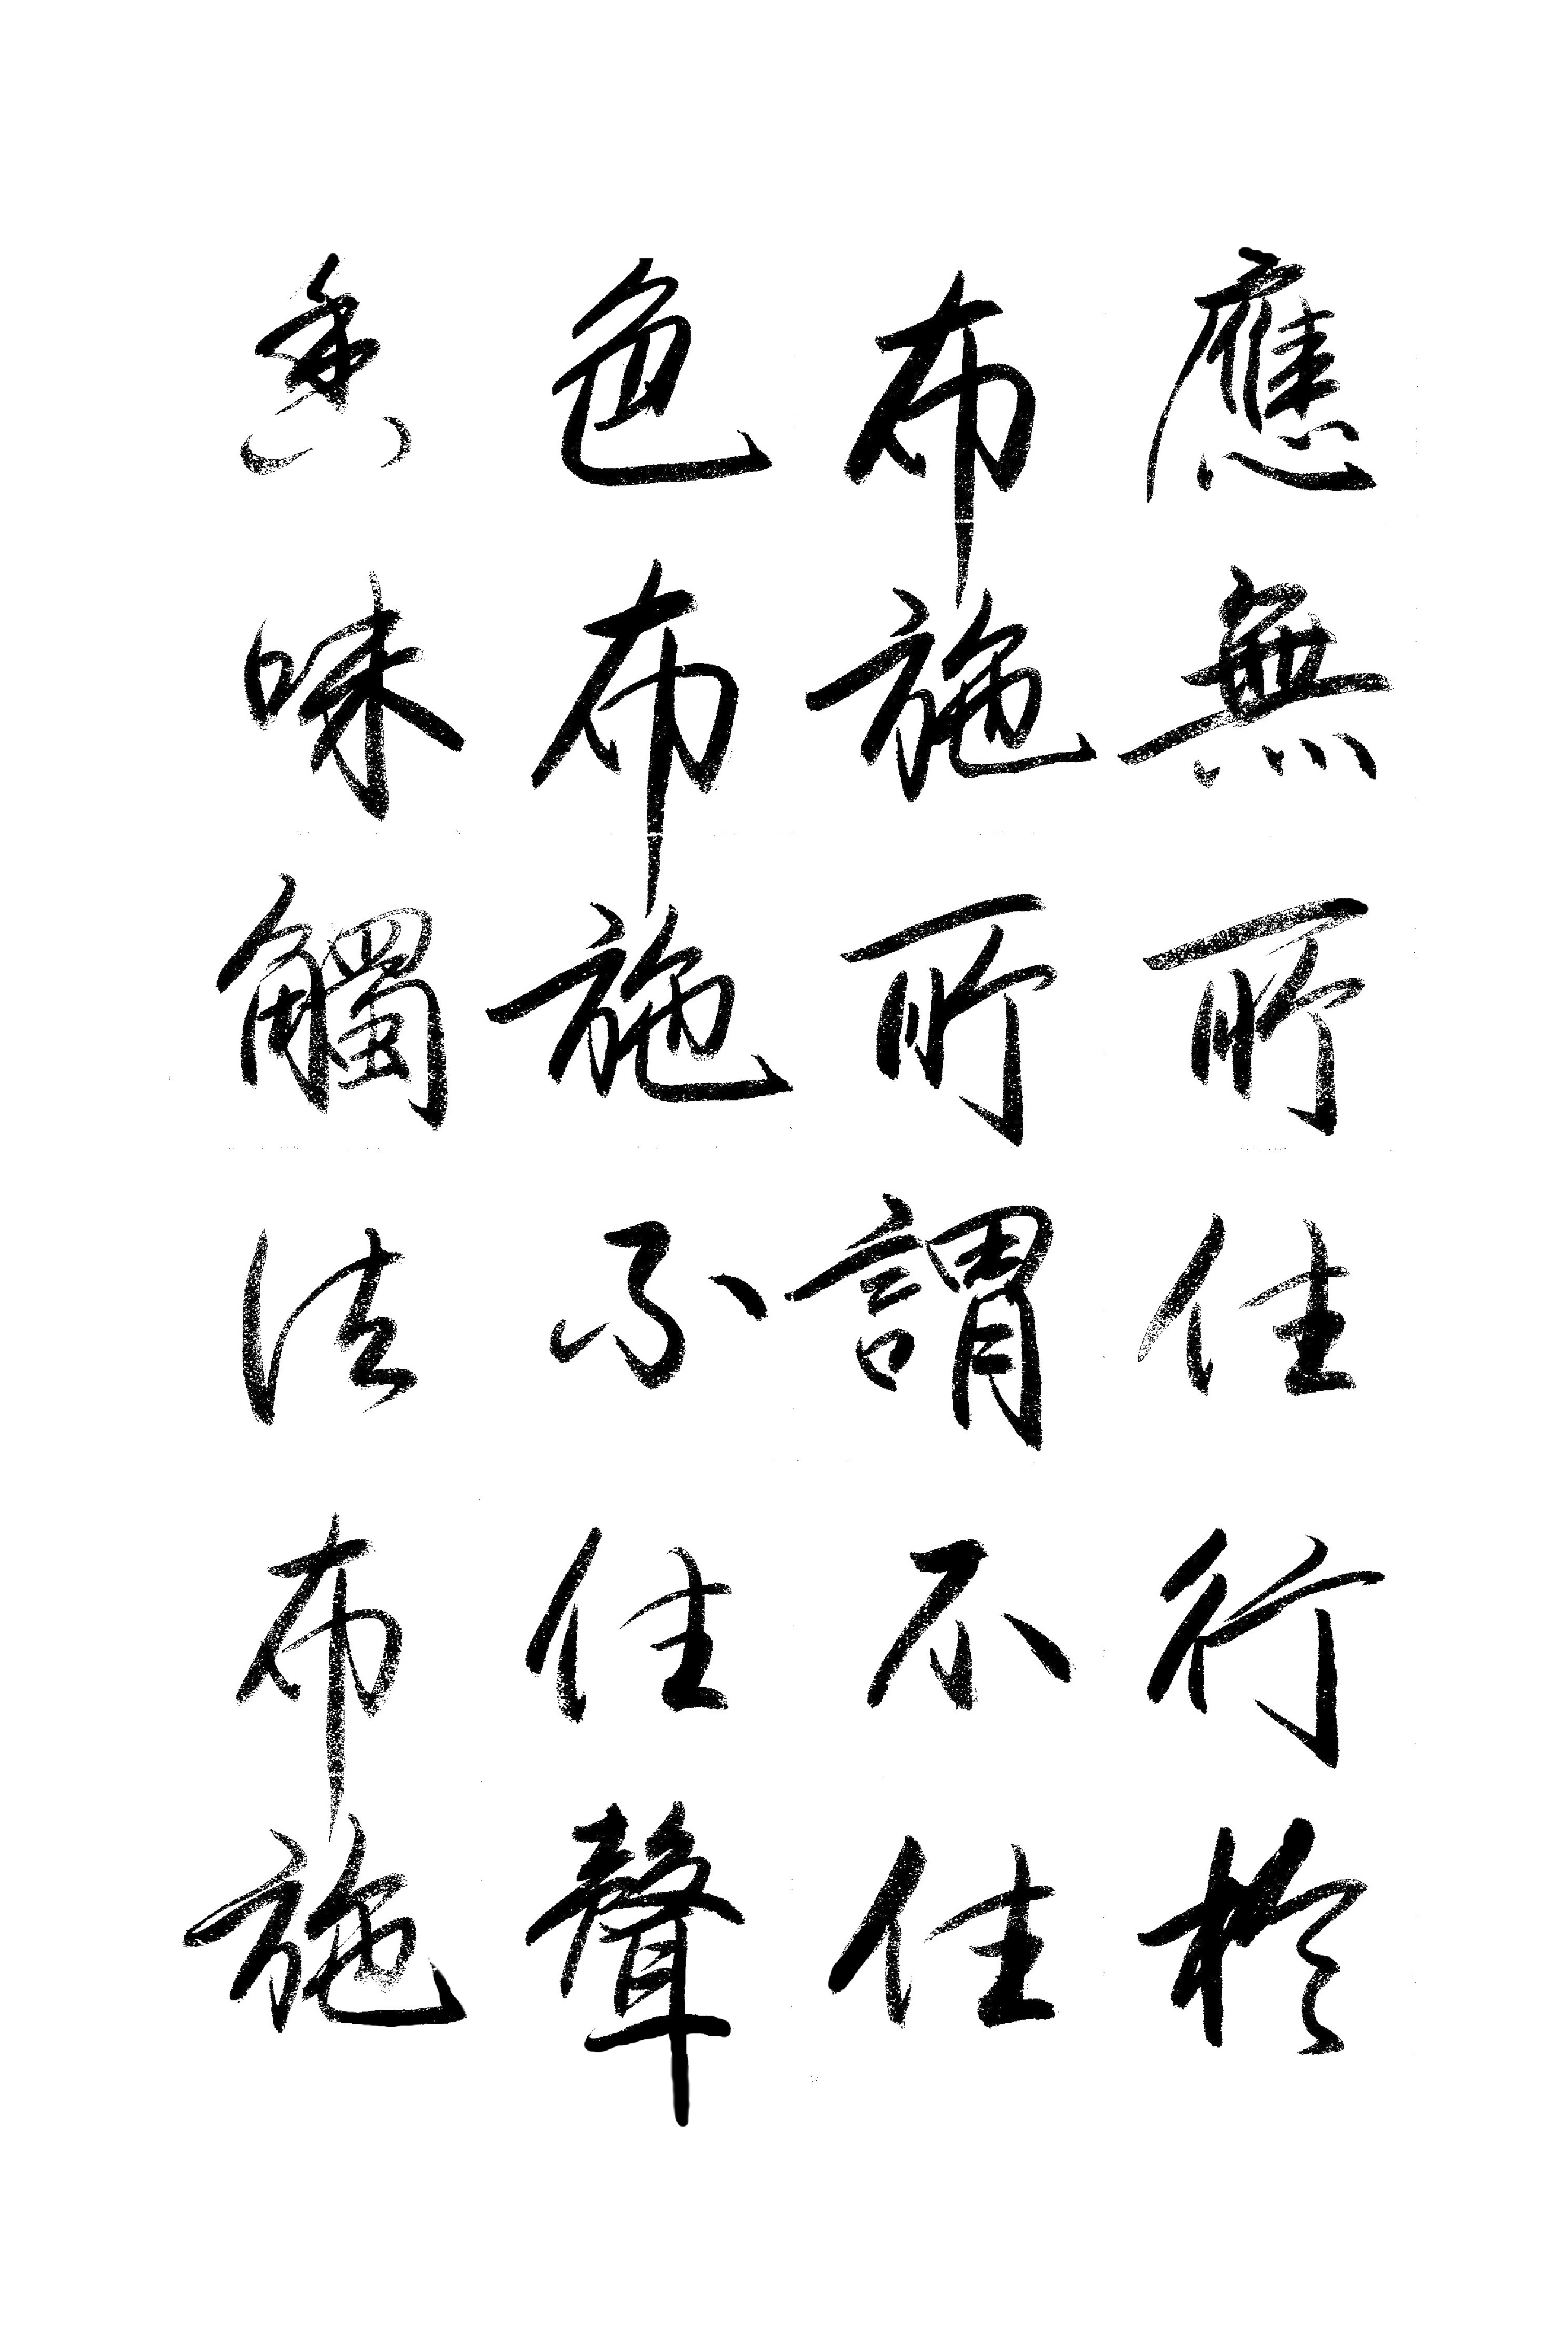 應無所住行於
布施所謂不住
色布施不住聲
香味觸法布施